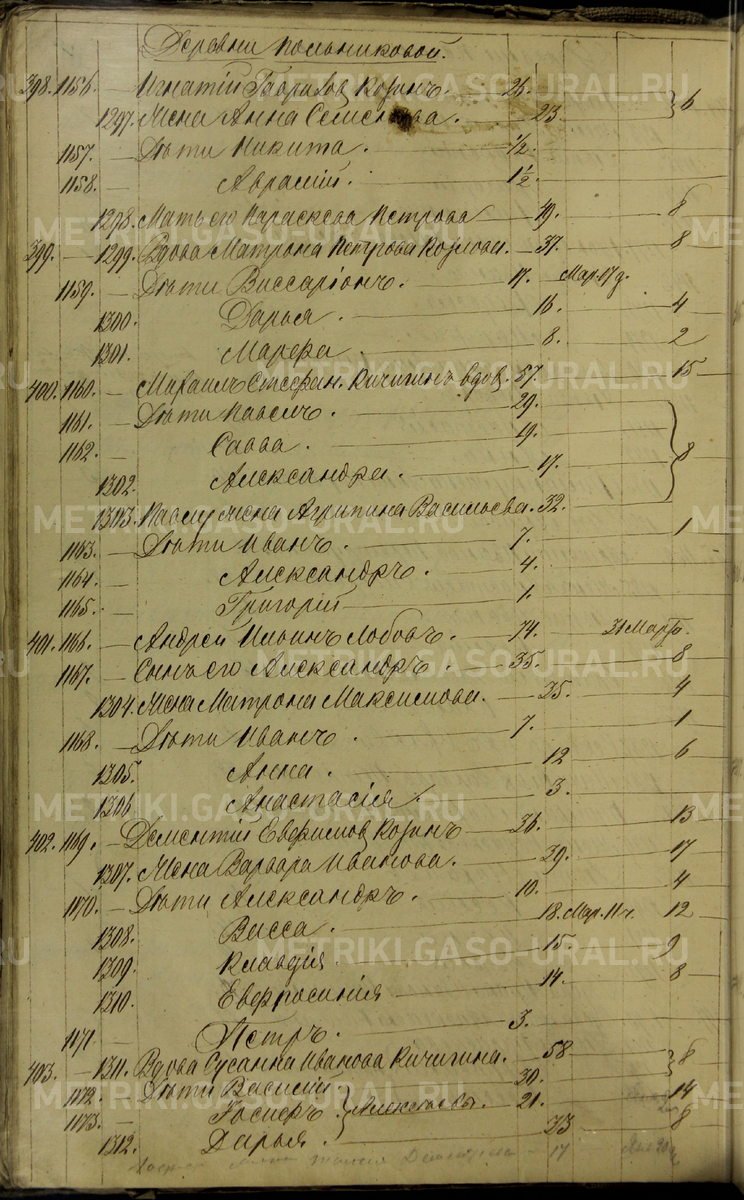 Деревни Польниковой.
398. 1156. — Игнатий Гаврилов Козинъ. — 26. — } 6
1297. Жена Анна Семенова. — 23.
1157. — Дѣти Никита. — 1/2.
1158. — Авраамій. — 1 1/2.
1298. Мать его Параскева Петрова — 49. — 8
399. — 1299. Вдова Матрона Петрова Козлова. — 37. — 8
1159. — Дѣти Виссаріонъ. — 17. — Мар. 17 д.
1300. Дарья. — 16. — 4
1301. Марфа — 8. — 2
400. 1160. — Михаилъ Стефан. Кичигинъ вдов. 57. — 15
1161. — Дѣти Павелъ. — 29.
1162. — Савва. — 19. } 8
1302. Александра. — 17.
1303. Павлу жена Агрипина Васильева. 32.
1163. — Дѣти Иванъ. — 7. — 1
1164. — Александръ. — 4.
1165. — Григорій — 1.
401. 1166. — Андрей Ильинъ Лобовъ. — 74. — 31 Март.
1167. — Сынъ его Александръ. — 35. — 8
1304. Жена Матрона Максимова. — 35. — 4
1168. — Дѣти Иванъ. — 7. — 1
1305. Анна. — 12 — 6
1306 Анастасія — 3.
402. 1169. — Дементій Евфимов Козинъ — 36. — 13
1307. Жена Варвара Иванова. — 39. — 17
1170. — Дѣти Александръ. — 10. — 4
1308. Васса. — 18. Мар. 11 ч. 12
1309. Клавдія — 15. — 9
1310. Евфросинія — 14. — 8
1171. — Петръ. — 3.
403. — 1311. Вдова Сусанна Иванова Кичигина. — 58 — } 8
1172. — Дѣти Василій — 30.
1173. — } Алексѣевы. — 21. — 14
1312. Дарья. — 33 — 8